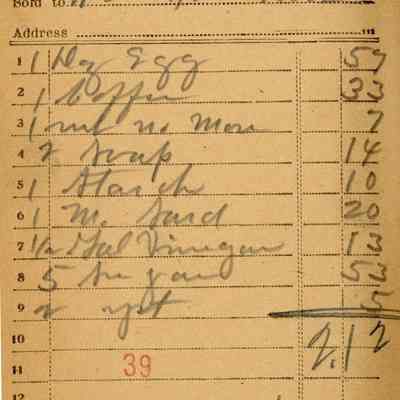 Sold to
Address
1 1 Dz Egg 57
2 1 Coffee 33
3 1 rub no More 7
4 2 Soap 14
5 1 Starch 10
6 1 M. Sard 20
7 1/2 Gal Vinegar 13
8 5 Sugar 53
9 2 yst 5
10 2.12
11 39
12